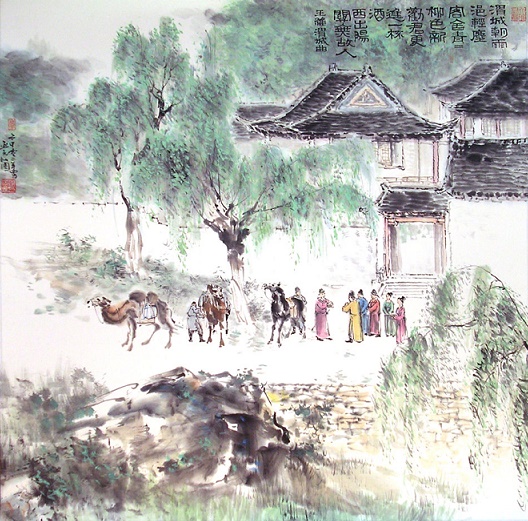 渭城朝雨
浥輕塵
客舍青〻
柳色新
勸君更
進一杯
酒
西出陽
關無故人
王維渭城曲